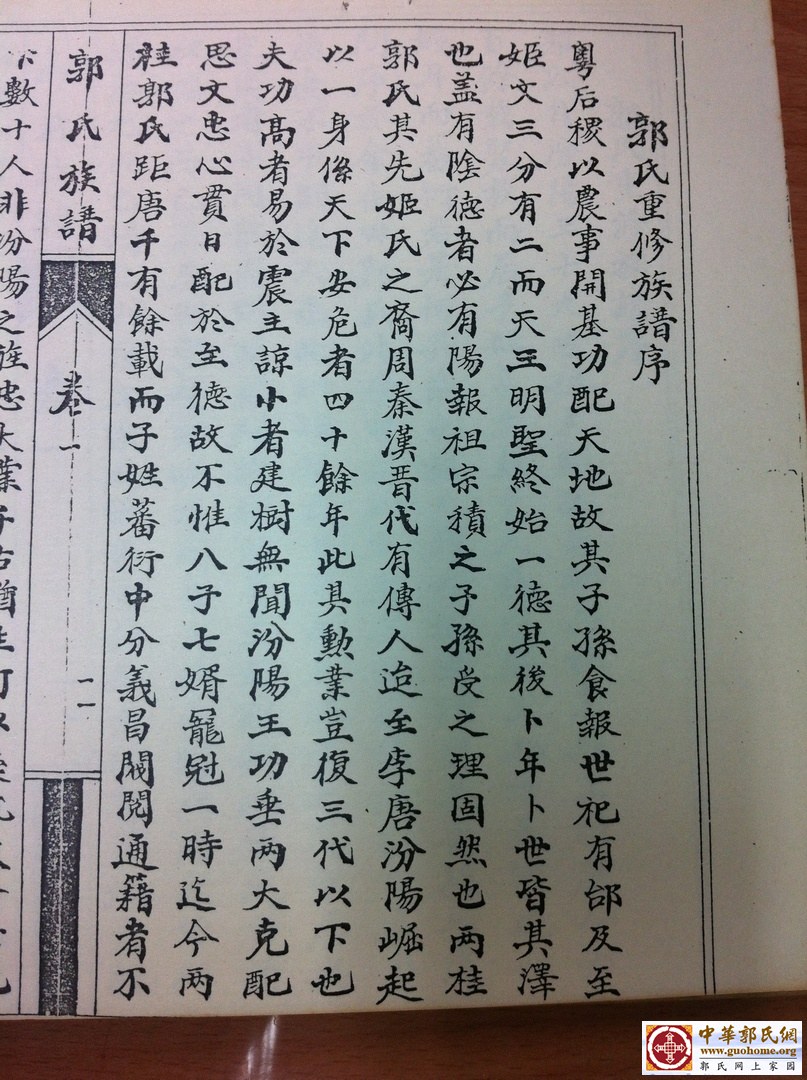 郭氏重修族譜序
粵后稷以農事開基功配天地故其子孫食報世祀有邰及至
姬文三分有二而天王明聖終始一德其後卜年卜世皆其澤
也蓋有陰德者必有陽報祖宗積之子孫受之理固然也兩桂
郭氏其先姬氏之裔周秦漢晋代有傳人迨至李唐汾陽崛起
以一身係天下安危者四十餘年此其勳業豈復三代以下也
夫功高者易於震主諒小者建樹無聞汾陽王功垂两大克配
思文忠心貫日配於至德故不惟八子七婿寵冠一時迄今两
桂郭氏距唐千有餘載而子姓蕃衍中分義昌閥閱通籍者不
郭氏族譜
卷一
一一
下數十人非汾陽之旌忠大業千古
中華郭氏網
www.guohome.org
郭氏网上家园